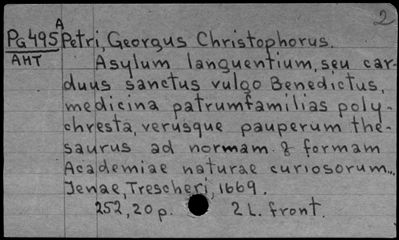 2
A
Pg495 Petri, Georgus Christophorus.
AHT Asylum languentium, seu car-
duus sanctus vulgo Benedictus,
medicina patrumfamilias poly-
chresta, verusque pauperum the-
saurus ad normam & formam
Academiae naturae curiosorum...
Jenae, Trescheri, 1669.
252, 20 p. 2 L. front.